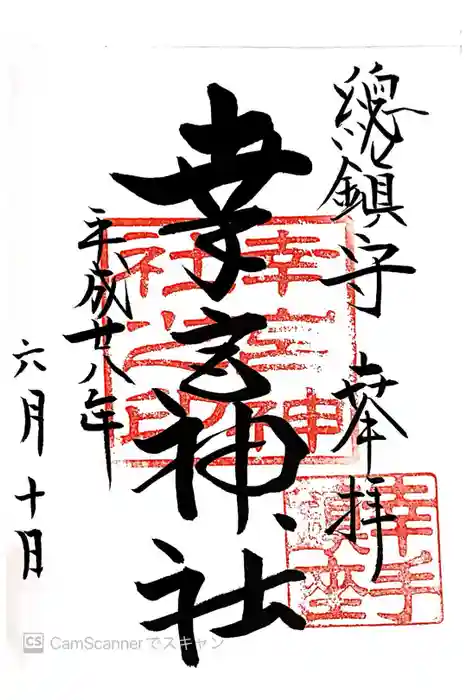 總鎮守 奉拝
幸宮神社
幸宮神
社之印
幸手
鎮座
平成廿八年
六月十日
CS CamScannerでスキャン